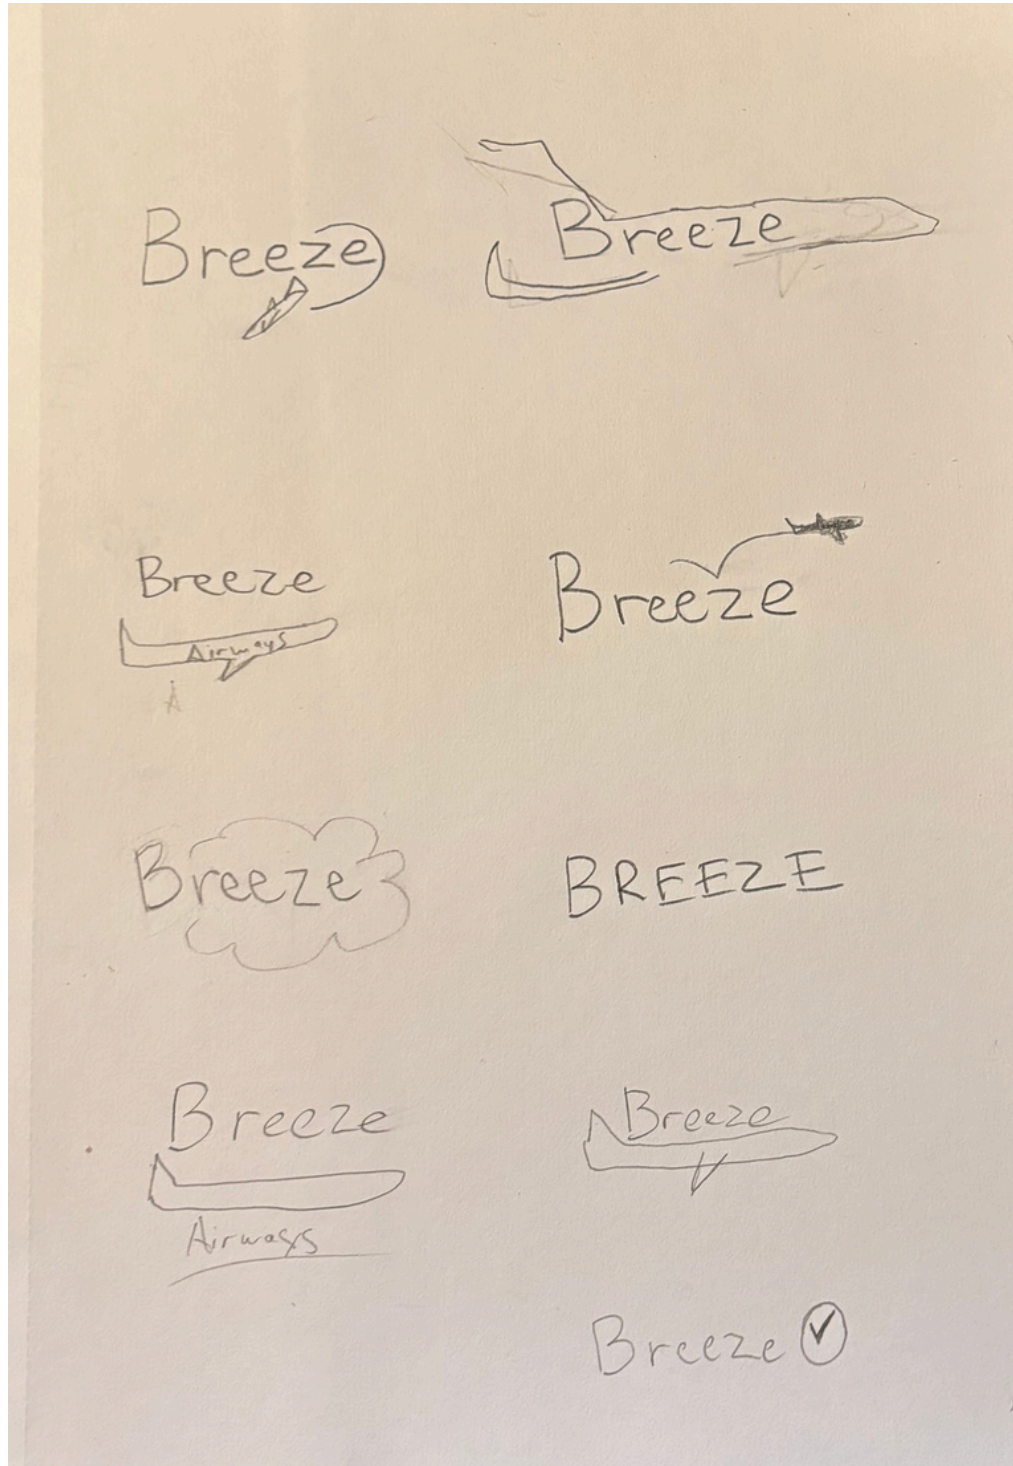 Breeze
Breeze
Breeze
Airways
Breeze
Breeze
BREEZE
Breeze
Airways
Breeze
Breeze